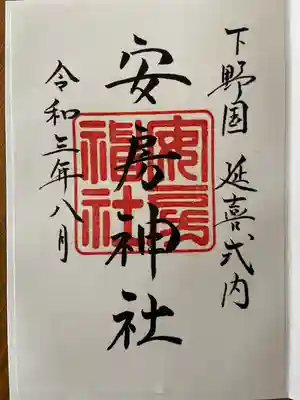 下野国 延喜式内
安房神社
安房神社
令和三年八月